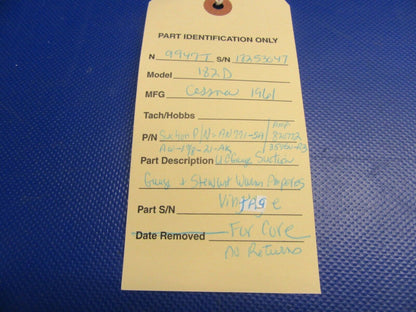 PART IDENTIFICATION ONLY
N 9947T S/N 18253047
Model 182D
MFG Cessna 1961
Tach/Hobbs
P/N Suction P/N= AN771-5A
Part Description Suction
Gauge + Stewart Warner Amperes
Part S/N Vintage
Date Removed For Core
No Returns